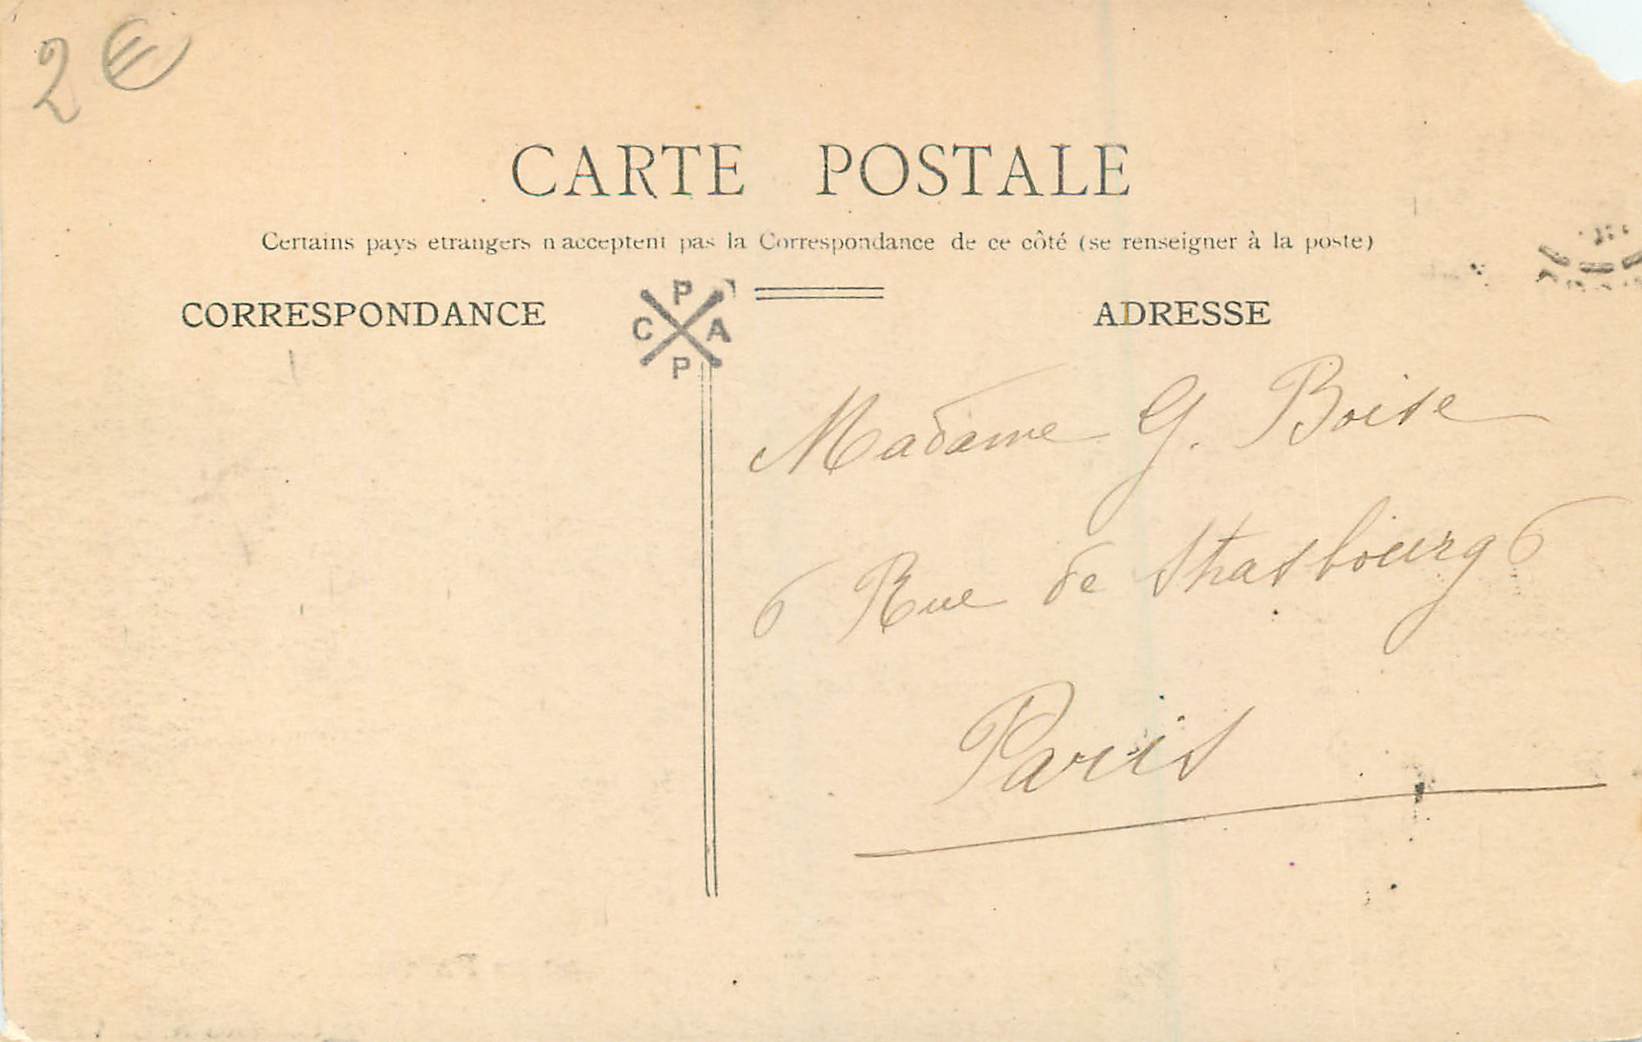 2€
CARTE POSTALE
Certains pays etrangers n acceptent pas la Correspondance de ce côté (se renseigner à la poste)
CORRESPONDANCE
P
C A
P
ADRESSE
Madame G. Boise
6 Rue de Strasbourg 6
Paris